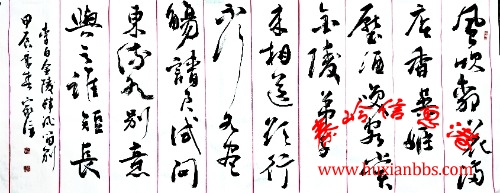 風吹柳花滿
店香吳姬
壓酒喚客嘗
金陵子弟
來相送欲行
不行各盡
觴請君試問
東流水別意
與之誰短長
李白金陵酒肆留別
甲辰春
秦岭信息港
www.huxianbbs.com